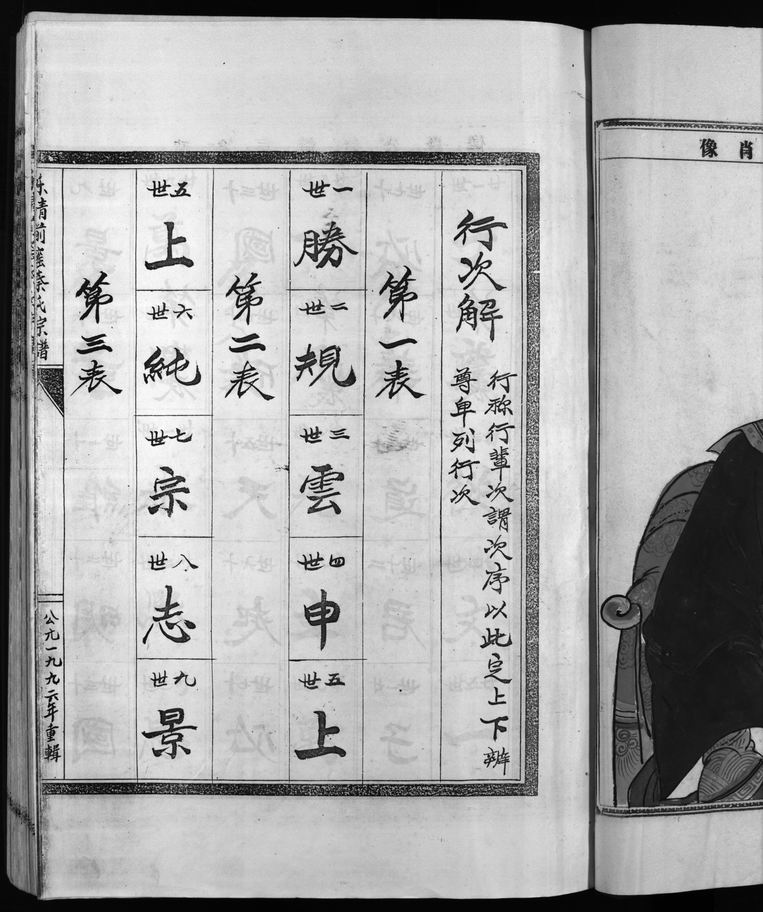 肖像
行次解
行稱行輩次謂次序以此定上下辨
尊卑列行次
第一表
一世 勝 二世 規 三世 雲 四世 申 五世 上
第二表
五世 上 六世 純 七世 宗 八世 志 九世 景
第三表
氏宗譜
公元一九九六年重輯